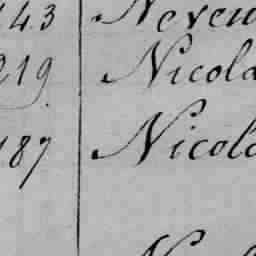 143 Neveu
219 Nicola
187 Nicola